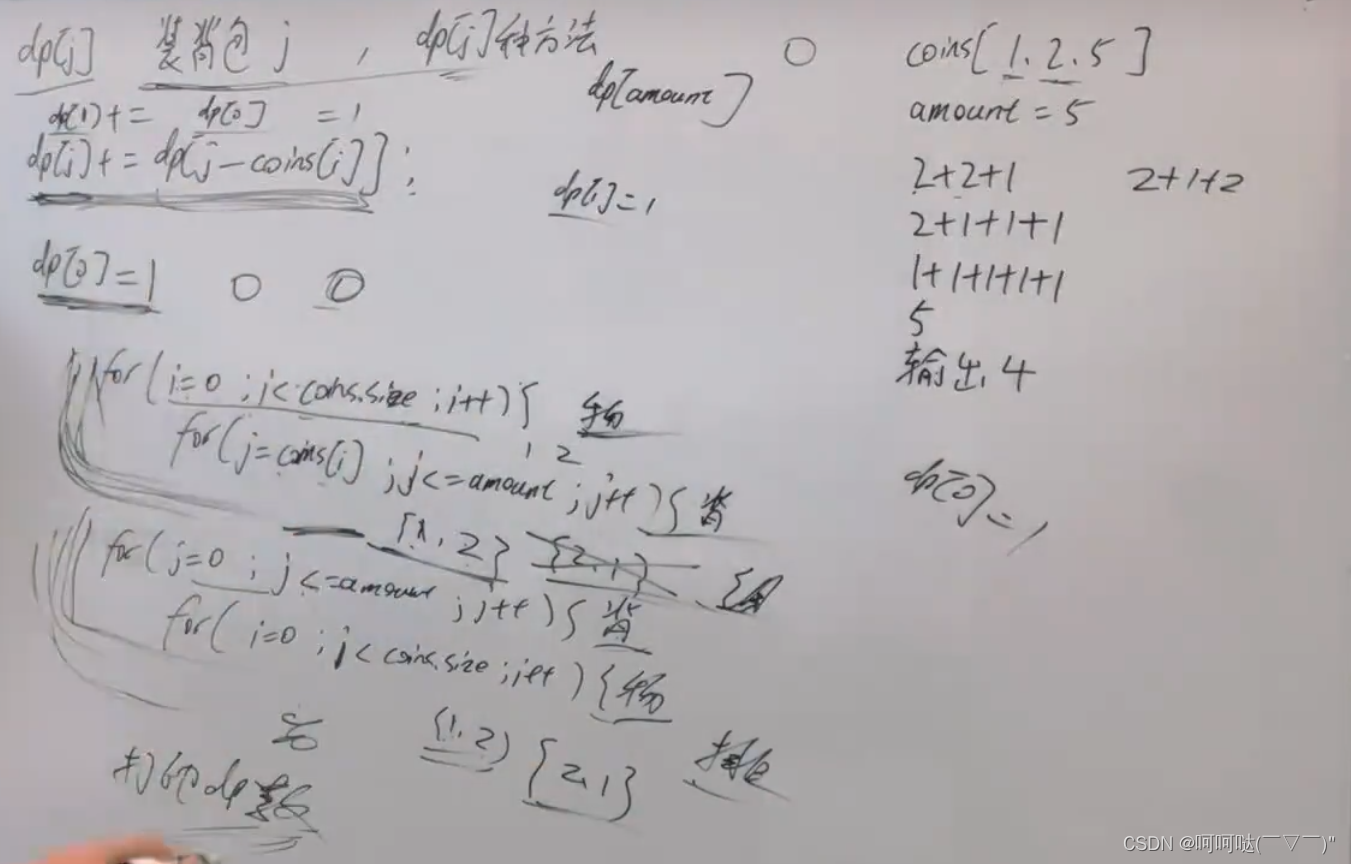 dp[j] 装背包 j , dp[j]种方法
dp[amount]
dp[1] += dp[0] = 1
dp[j] += dp[j-coins[i]];
dp[1]=1
dp[0]=1 0 0
for(i=0 ; i<coins.size ; i++){ 物
1 2
for(j=coins[i] ; j<=amount ; j++){ 背
{1, 2} {2, 1}
for(j=0 ; j<=amount ; j++){ 背
for( i=0 ; i<coins.size ; i++){ 物
{1,2} {2,1} 排
打印dp数
0
coins[1.2.5]
amount = 5
2+2+1 2+1+2
2+1+1+1
1+1+1+1+1
5
输出 4
dp[0]=1
CSDN @呵呵哒(￣▽￣)"